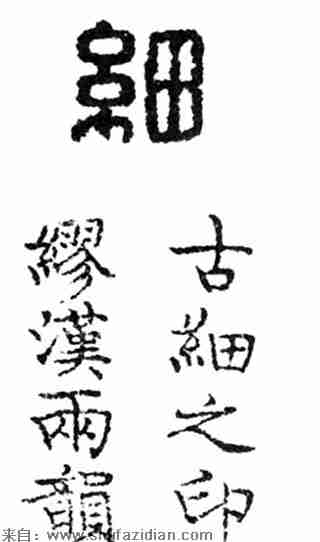 細
古細之印
繆漢兩韻
来自:www.shufazidian.com